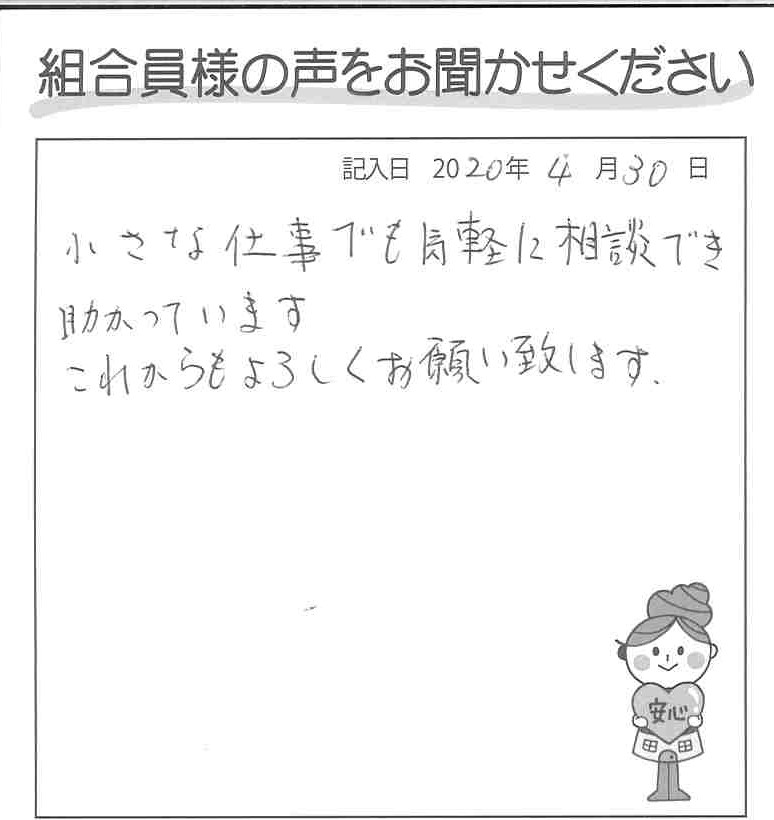 組合員様の声をお聞かせください
記入日 2020年 4月30日
小さな仕事でも気軽に相談でき
助かっています
これからもよろしくお願い致します.
安心